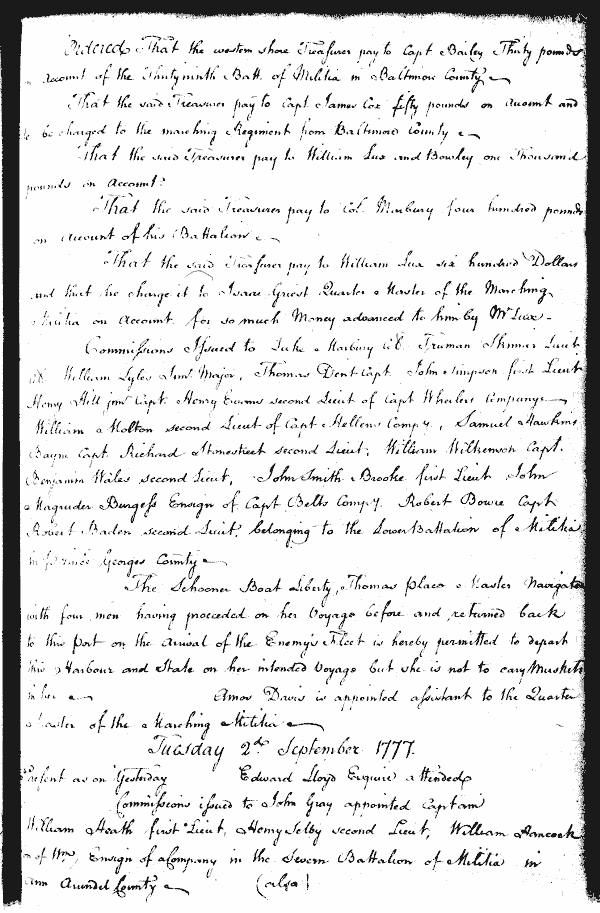 Ordered That the western shore Treasurer pay to Capt Bailey Thirty pounds
Account of the Thirty ninth Batt. of Militia in Baltimore County
That the said Treasurer pay to Capt James Cox fifty pounds on Account and
to be charged to the marching Regiment from Baltimore County
That the said Treasurer pay to William Lux and Bowley one Thousand
pounds on Account.
That the said Treasurer pay to Col. Marbury four hundred pounds
on Account of his Battalion
That the said Treasurer pay to William Lux six hundred Dollars
and that he charge it to Isaac Griest Quarter Master of the Marching
Militia on Account for so much Money advanced to him by Mr Lux
Commissions Issued to Luke Marbury Col. Truman Skinner Lieut
Col. William Lyles Junr Major, Thomas Dent Capt. John Simpson first Lieut
Henry Hill junr Capt. Henry Evans second Lieut of Capt Wheelers Company
William Molton second Lieut of Capt Hellens Compy., Samuel Hawkins
Bayne Capt. Richard Stonestreet second Lieut; William Wilkenson Capt.
Benjamin Wales second Lieut, John Smith Brooke first Lieut John
Magruder Burgess Ensign of Capt Belts Compy. Robert Bowie Capt
Robert Baden second Lieut, belonging to the Lower Battalion of Militia
in Prince Georges County
The Schooner Boat Liberty, Thomas Place Master Navigated
with four men having proceeded on her Voyage before and returned back
to this Port on the arival of the Enemy's Fleet is hereby permitted to depart
this Harbour and State on her intended Voyage but she is not to cary Muskets
in her Amos Davis is appointed assistant to the Quarter
Master of the Marching Militia
Tuesday 2nd September 1777.
Present as on Yesterday Edward Lloyd Esquire attended
Commissions issued to John Gray appointed Captain
William Heath first Lieut, Henry Selby second Lieut, William Hancock
son of Wm, Ensign of a Company in the Severn Battalion of Militia in
Ann Arundel County (also)